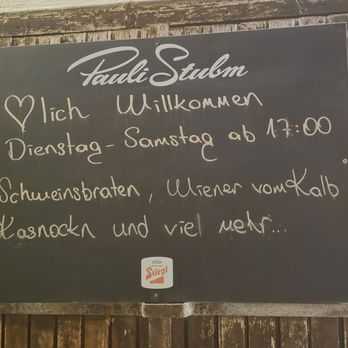 Pauli Stubm
♡lich Willkommen
Dienstag - Samstag ab 17:00
Schweinsbraten, Wiener vom Kalb
Kasnockn und viel mehr...
Stiegl